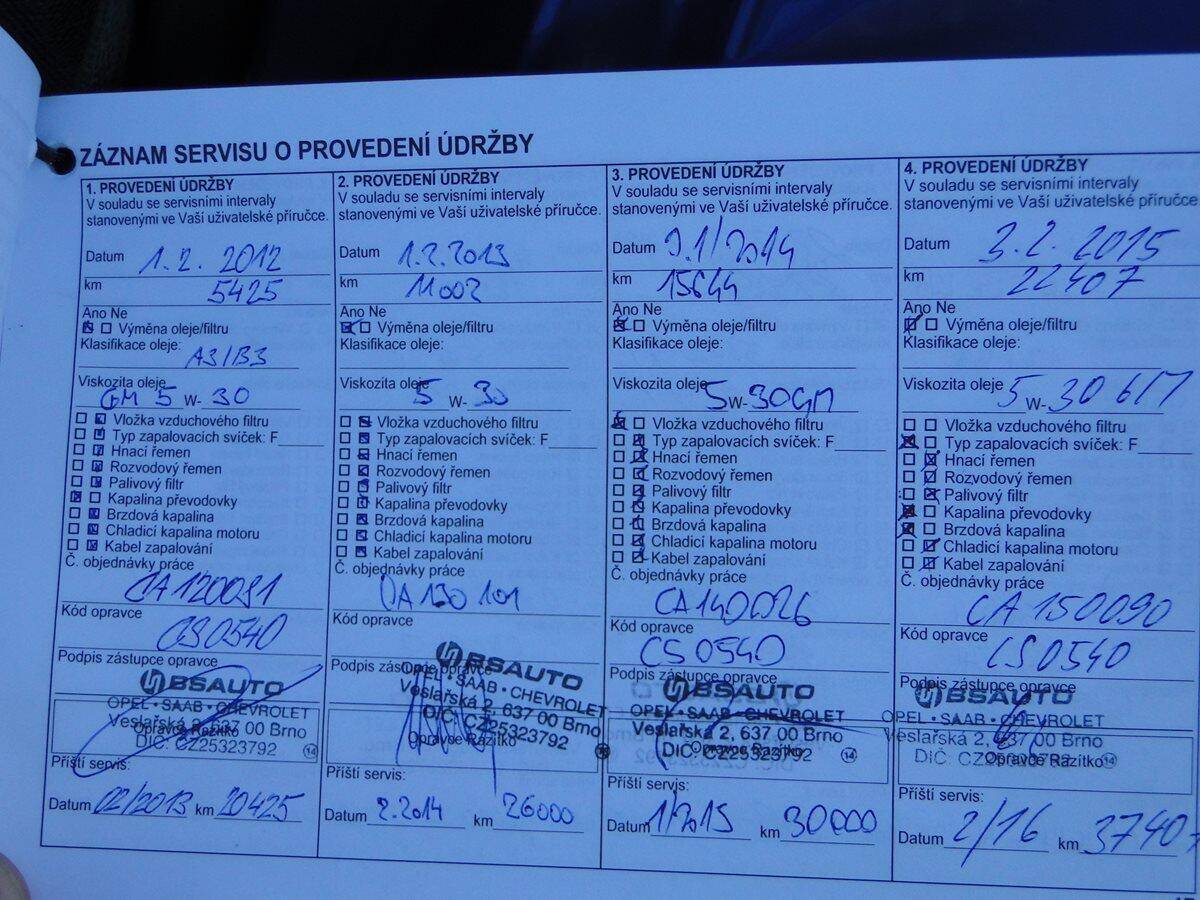 ZÁZNAM SERVISU O PROVEDENÍ ÚDRŽBY
1. PROVEDENÍ ÚDRŽBY
V souladu se servisními intervaly
stanovenými ve Vaší uživatelské příručce.
Datum 1.2. 2012
km 5425
Ano Ne
Výměna oleje/filtru
Klasifikace oleje:
A3/B3
Viskozita oleje
GM 5 W- 30
Vložka vzduchového filtru
Typ zapalovacích svíček: F
Hnací řemen
Rozvodový řemen
Palivový filtr
Kapalina převodovky
Brzdová kapalina
Chladicí kapalina motoru
Kabel zapalování
Č. objednávky práce
CA120091
Kód opravce
CS0540
Podpis zástupce opravce
BSAUTO
OPEL • SAAB • CHEVROLET
Veslařská 2, 637 00 Brno
Opravce Razítko
DIČ: CZ25323792 14
Příští servis:
Datum 02/2013 km 20425
2. PROVEDENÍ ÚDRŽBY
V souladu se servisními intervaly
stanovenými ve Vaší uživatelské příručce.
Datum 1.2.2013
km 11002
Ano Ne
Výměna oleje/filtru
Klasifikace oleje:
Viskozita oleje
5 W- 30
Vložka vzduchového filtru
Typ zapalovacích svíček: F
Hnací řemen
Rozvodový řemen
Palivový filtr
Kapalina převodovky
Brzdová kapalina
Chladicí kapalina motoru
Kabel zapalování
Č. objednávky práce
OA130101
Kód opravce
Podpis zástupce opravce
BSAUTO
OPEL • SAAB • CHEVROLET
Veslařská 2, 637 00 Brno
DIČ: CZ25323792
Opravce Razítko
Příští servis:
Datum 2.2014 km 26000
3. PROVEDENÍ ÚDRŽBY
V souladu se servisními intervaly
stanovenými ve Vaší uživatelské příručce.
Datum 9.1/2014
km 15644
Ano Ne
Výměna oleje/filtru
Klasifikace oleje:
Viskozita oleje
5W-30GM
Vložka vzduchového filtru
Typ zapalovacích svíček: F
Hnací řemen
Rozvodový řemen
Palivový filtr
Kapalina převodovky
Brzdová kapalina
Chladicí kapalina motoru
Kabel zapalování
Č. objednávky práce
CA140026
Kód opravce
CS0540
Podpis zástupce opravce
BSAUTO
OPEL • SAAB • CHEVROLET
Veslařská 2, 637 00 Brno
DIČ: CZ25323792 14
Opravce Razítko
Příští servis:
Datum 1/2015 km 30000
4. PROVEDENÍ ÚDRŽBY
V souladu se servisními intervaly
stanovenými ve Vaší uživatelské příručce.
Datum 3.2. 2015
km 22407
Ano Ne
Výměna oleje/filtru
Klasifikace oleje:
Viskozita oleje 5 W-30 GM
Vložka vzduchového filtru
Typ zapalovacích svíček: F
Hnací řemen
Rozvodový řemen
Palivový filtr
Kapalina převodovky
Brzdová kapalina
Chladicí kapalina motoru
Kabel zapalování
Č. objednávky práce
CA 150090
Kód opravce
CS0540
Podpis zástupce opravce
BSAUTO
OPEL • SAAB • CHEVROLET
Veslařská 2, 637 00 Brno
Opravce Razítko
Příští servis:
Datum 2/16 km 37407